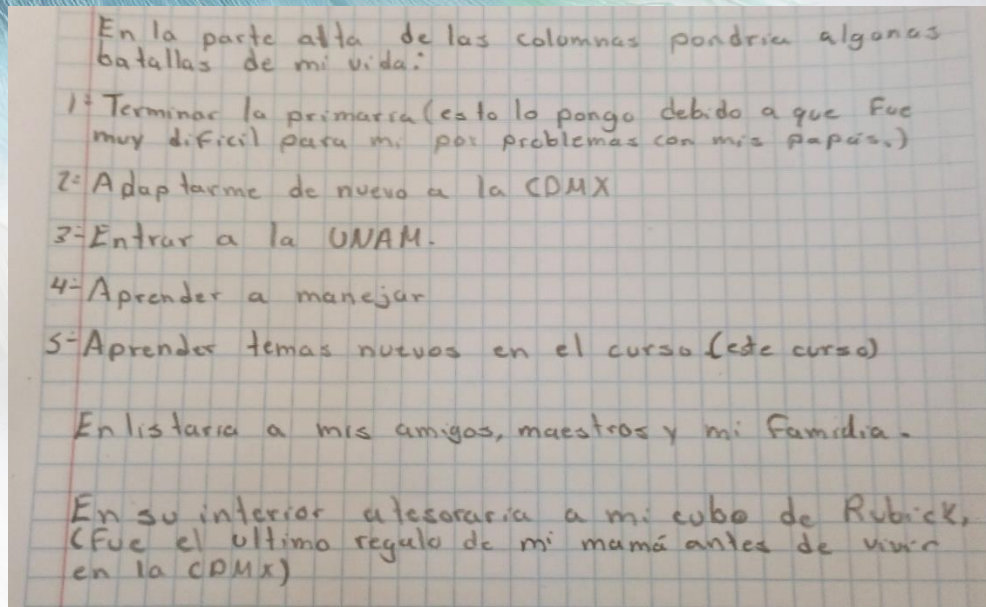 En la parte alta de las columnas pondria algunas
batallas de mi vida:
1= Terminar la primaria (esto lo pongo debido a que Fue
muy dificil para mi por problemas con mis papás.)
2= Adaptarme de nuevo a la CDMX
3=Entrar a la UNAM.
4=Aprender a manejar
5=Aprender temas nuevos en el curso (este curso)
Enlistaria a mis amigos, maestros y mi Familia.
En su interior atesoraria a mi cubo de Rubick,
(Fue el ultimo regalo de mi mamá antes de vivir
en la CDMX)